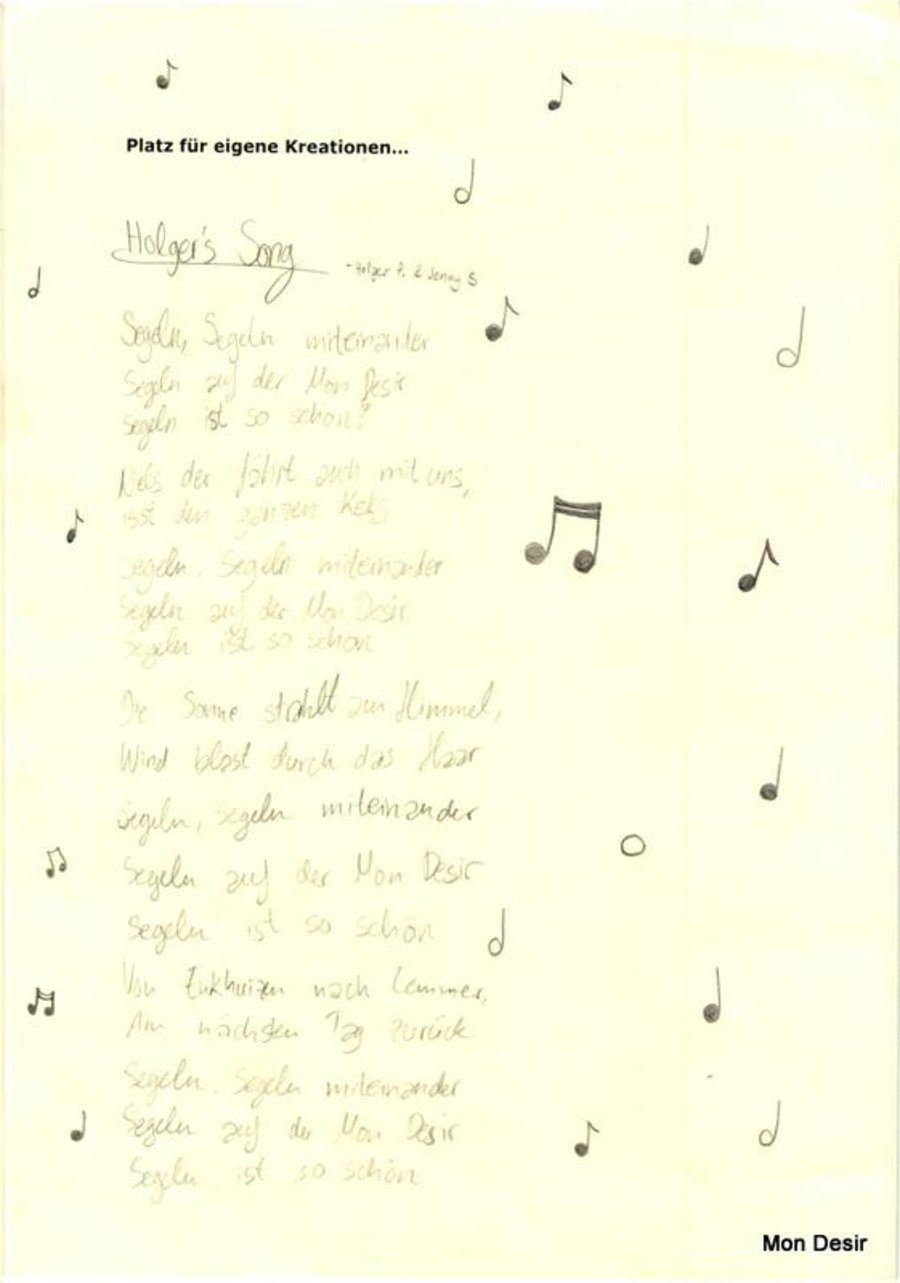 Platz für eigene Kreationen...
Holger's Song
- Holger F. & Jenny S
Segeln, Segeln miteinander
Segeln auf der Mon Desir
Segeln ist so schön!
der fährt auch mit uns,
isst den ganzen Keks
Segeln, Segeln miteinander
Segeln auf der Mon Desir
Segeln ist so schön
Die Sonne strahlt am Himmel,
Wind bläst durch das Haar
Segeln, Segeln miteinander
Segeln auf der Mon Desir
Segeln ist so schön
Von Enkhuizen nach Lemmer,
Am nächsten Tag zurück
Segeln, Segeln miteinander
Segeln auf der Mon Desir
Segeln ist so schön
Mon Desir